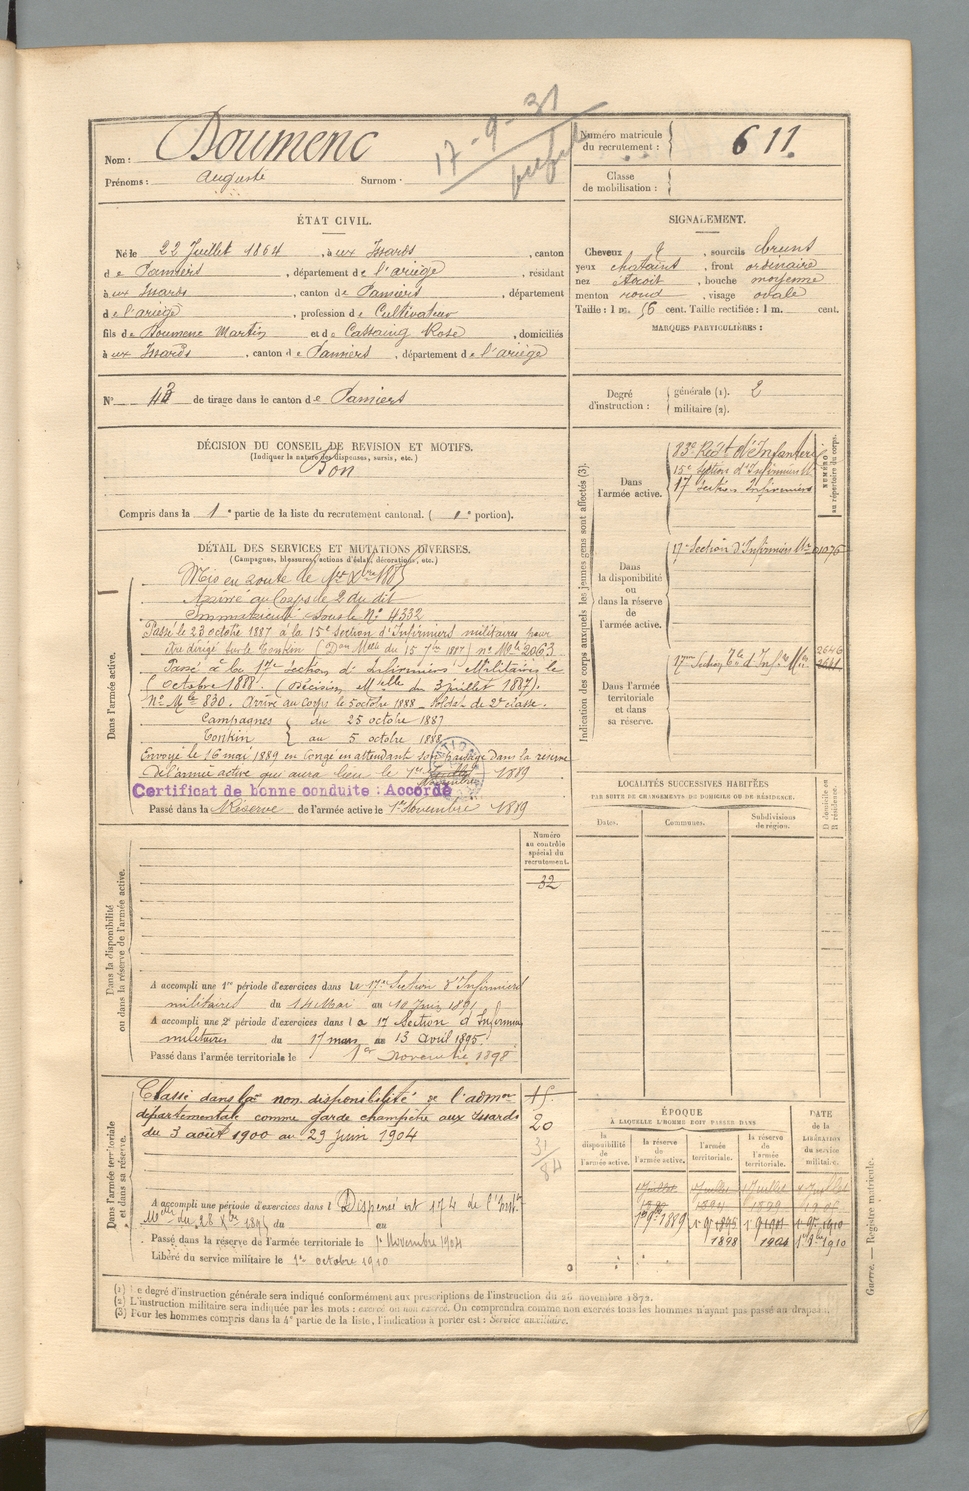 17-9-31
Nom : Doumenc
Prénoms : Auguste Surnom :
Numéro matricule du recrutement : 611
Classe de mobilisation :
ÉTAT CIVIL.
Né le 22 Juillet 1864, à ux Issards, canton
de Pamiers, département de l'ariège, résidant
à ux Issards, canton de Pamiers, département
de l'ariège, profession de Cultivateur
fils de Doumenc Martin et de Cassaing Rose, domiciliés
à ux Issards, canton de Pamiers, département de l'ariège
SIGNALEMENT.
Cheveux &, sourcils bruns
yeux chatains, front ordinaire
nez étroit, bouche moyenne
menton rond, visage ovale
Taille : 1 m. 56 cent. Taille rectifiée : 1 m. cent.
MARQUES PARTICULIÈRES :
N° 43 de tirage dans le canton de Pamiers
Degré d'instruction : générale (1). 2
militaire (2).
DÉCISION DU CONSEIL DE REVISION ET MOTIFS.
(Indiquer la nature des dispenses, sursis, etc.)
Bon
Compris dans la 1e partie de la liste du recrutement cantonal. ( 1e portion).
DÉTAIL DES SERVICES ET MUTATIONS DIVERSES.
(Campagnes, blessures, actions d'éclat, décorations, etc.)
Dans l'armée active.
Mis en route le 1er Xbre 1885
Arrivé au Corps le 2 du dit
Immatriculé sous le N° 4332
Passé le 23 octobre 1887 à la 15e Section d'Infirmiers militaires pour
être dirigé sur le Tonkin (Don Mlle du 15 7bre 1887) n° Mle 2063
Passé à la 17e Section d'Infirmiers Militaires le
( octobre 1888. (Décision Mielle du 3 juillet 1887).
N° Mle 830. Arrivé au Corps le 5 octobre 1888 - Soldat de 2e classe.
Campagnes { du 25 octobre 1887
Tonkin { au 5 octobre 1888
Envoyé le 16 mai 1889 en congé en attendant son passage dans la réserve
de l'armée active qui aura lieu le 1er Novembre 1889
Certificat de bonne conduite : Accordé
Passé dans la Réserve de l'armée active le 1er Novembre 1889
Indication des corps auxquels les jeunes gens sont affectés (3).
NUMÉRO au répertoire du corps.
Dans l'armée active.
83e Régt d'Infanterie
15e Section d'Infirmiers M
17 Section Infirmiers
Dans la disponibilité ou dans la réserve de l'armée active.
17e Section d'Infirmiers Mres 01076
Dans l'armée territoriale et dans sa réserve.
2646
LOCALITÉS SUCCESSIVES HABITÉES
PAR SUITE DE CHANGEMENTS DE DOMICILE OU DE RÉSIDENCE.
Dates. Communes. Subdivisions de région. D domicile ou R résidence.
Dans la disponibilité ou dans la réserve de l'armée active.
Numéro au contrôle spécial du recrutement.
32
A accompli une 1re période d'exercices dans la 17e Section d'Infirmiers
militaires du 14 Mai au 10 Juin 1891
A accompli une 2e période d'exercices dans la 17 Section d'Infirmiers
militaires du 17 mars au 13 avril 1895
Passé dans l'armée territoriale le 1er novembre 1898
Dans l'armée territoriale et dans sa réserve.
Classé dans la non disponibilité de l'admon
départementale comme garde champêtre aux Issards
du 3 août 1900 au 29 juin 1904
15
20
31
84
A accompli une période d'exercices dans l Dispensé art 174 de l'Instr
Mlle du 28 Xbre 1895 du au
Passé dans la réserve de l'armée territoriale le 1er Novembre 1904
Libéré du service militaire le 1er octobre 1910
ÉPOQUE
À LAQUELLE L'HOMME DOIT PASSER DANS
DATE de la LIBÉRATION du service militaire.
la disponibilité de l'armée active. la réserve de l'armée active. l'armée territoriale. la réserve de l'armée territoriale.
1 Juillet 1 Juillet 1 Juillet 1 Juillet
1894 1899
1er 9bre 1889 1er 9 1895 1er 9 1901 1er 9bre 1910
1898 1904 1910
(1) Le degré d'instruction générale sera indiqué conformément aux prescriptions de l'instruction du 26 novembre 1872.
(2) L'instruction militaire sera indiquée par les mots : exercé ou non exercé. On comprendra comme non exercés tous les hommes n'ayant pas passé au drapeau.
(3) Pour les hommes compris dans la 4e partie de la liste, l'indication à porter est : Service auxiliaire.
Guerre. — Registre matricule.